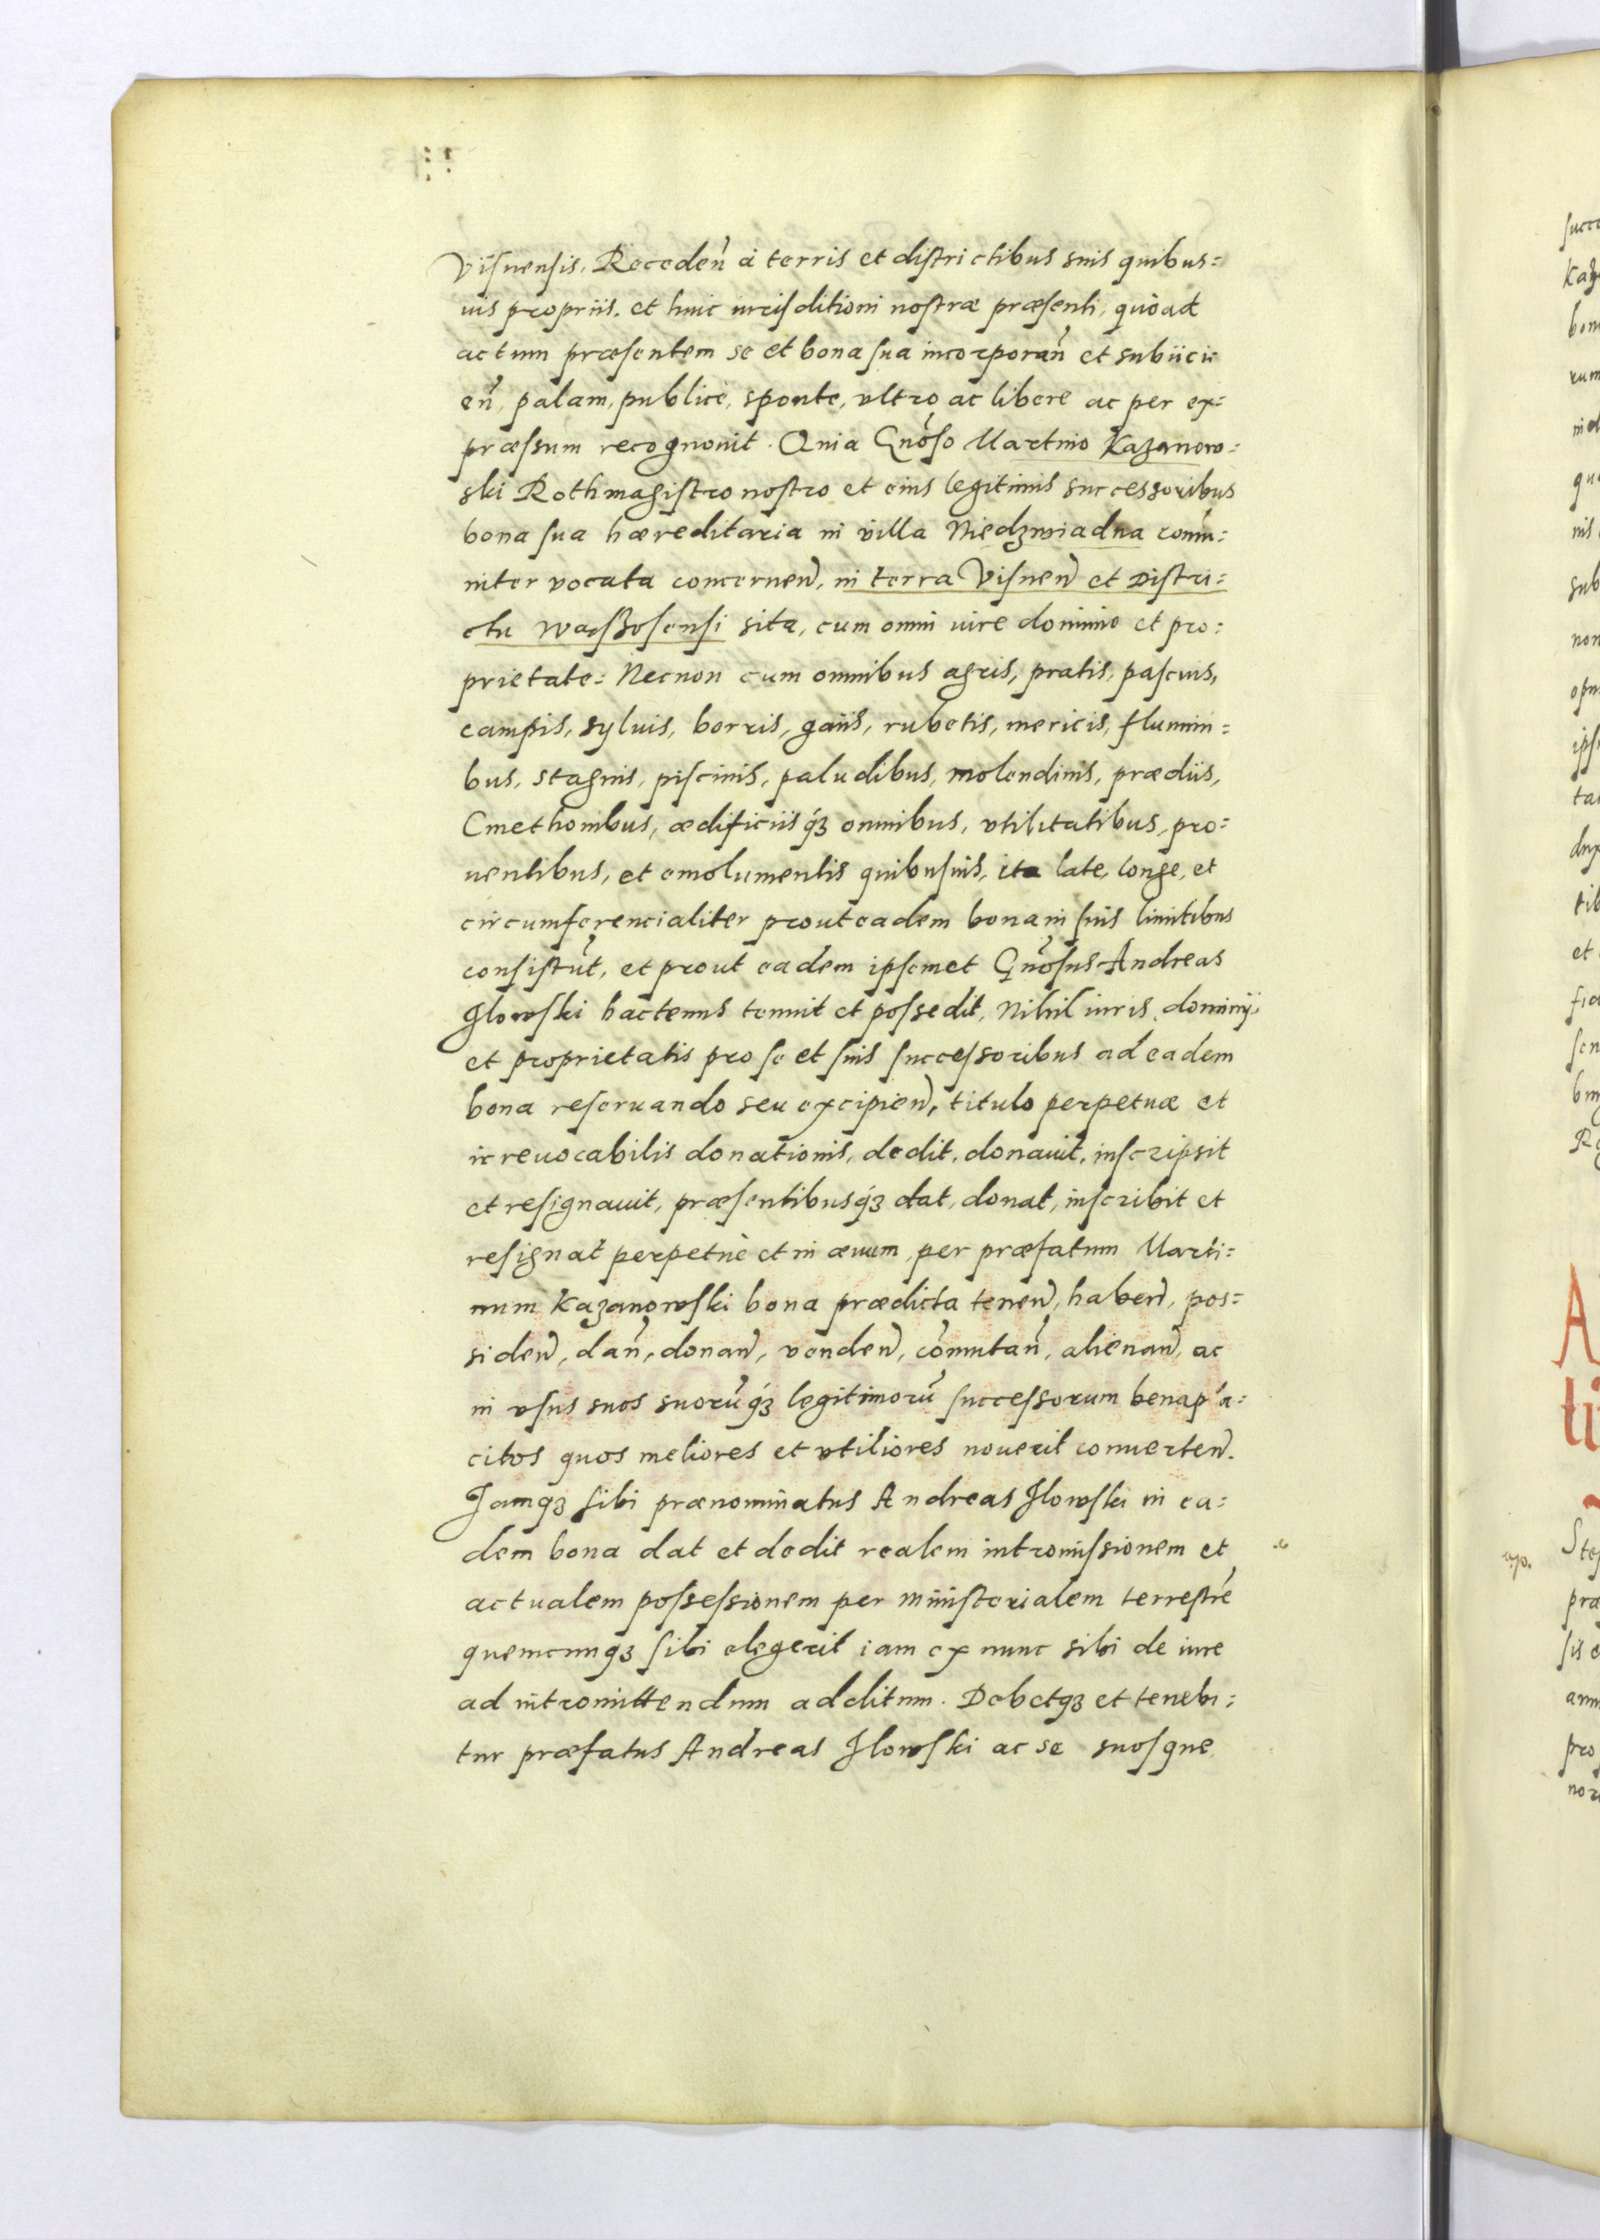 Visnensis, Receden̄ à terris et districtibus suis quibus=
uis propriis. et huic iurisditioni nostræ præsenti, quòad
actum præsentem se et bona sua incorporan̄ et subiici=
en̄, palam, publicè, sponte, vltro ac libere ac per ex=
præssum recognouit. Quia Gnōso Martino Kazanow=
ski Rothmagistro nostro et eius legitimis successoribus
bona sua hæreditaria in villa Niedzwiadna com̄u=
niter vocata concernen̄, in terra Visnen̄ et Distri=
ctu Wąssosensi sita, cum omni iure dominio et pro=
prietate: Necnon cum omnibus agris, pratis, pascuis,
campis, syluis, borris, gaiis, rubetis, mericis, flumini=
bus, stagnis, piscinis, paludibus, molendinis, prædiis,
Cmethonibus, ædificiisq́ꝫ omnibus, vtilitatibus, pro=
uentibus, et emolumentis quibusuis, ita late, longe, et
circumferencialiter prout eadem bona in suis limitibus
consistūt, et prout eadem ipsemet Gnōsus Andreas
Jlowski hactenus tenuit et possedit, Nihil iuris, dominij,
et proprietatis pro se et suis successoribus ad eadem
bona reseruando seu excipien̄, titulo perpetuæ et
irreuocabilis donationis, dedit, donauit, inscripsit
et resignauit, præsentibusq́ꝫ dat, donat, inscribit et
resignat perpetuè et in æuum per præfatum Marti=
num Kazanowski bona prædicta tenen̄, haben̄, pos=
siden̄, dan̄, donan̄, venden̄, cōmutan̄, alienan̄, ac
in vsus suos suorūq́ꝫ legitimorū successorum benapla=
citos quos meliores et vtiliores nouerit conuerten̄.
Jamqꝫ sibi prænominatus Andreas Jlowski in ea=
dem bona dat et dedit realem intromissionem et
actualem possessionem per ministerialem terrestrē
quemcunqꝫ sibi elegerit iam ex nunc sibi de iure
ad intromittendum additum. Debetqꝫ et tenebi=
tur præfatus Andreas Jlowski ac se suosque